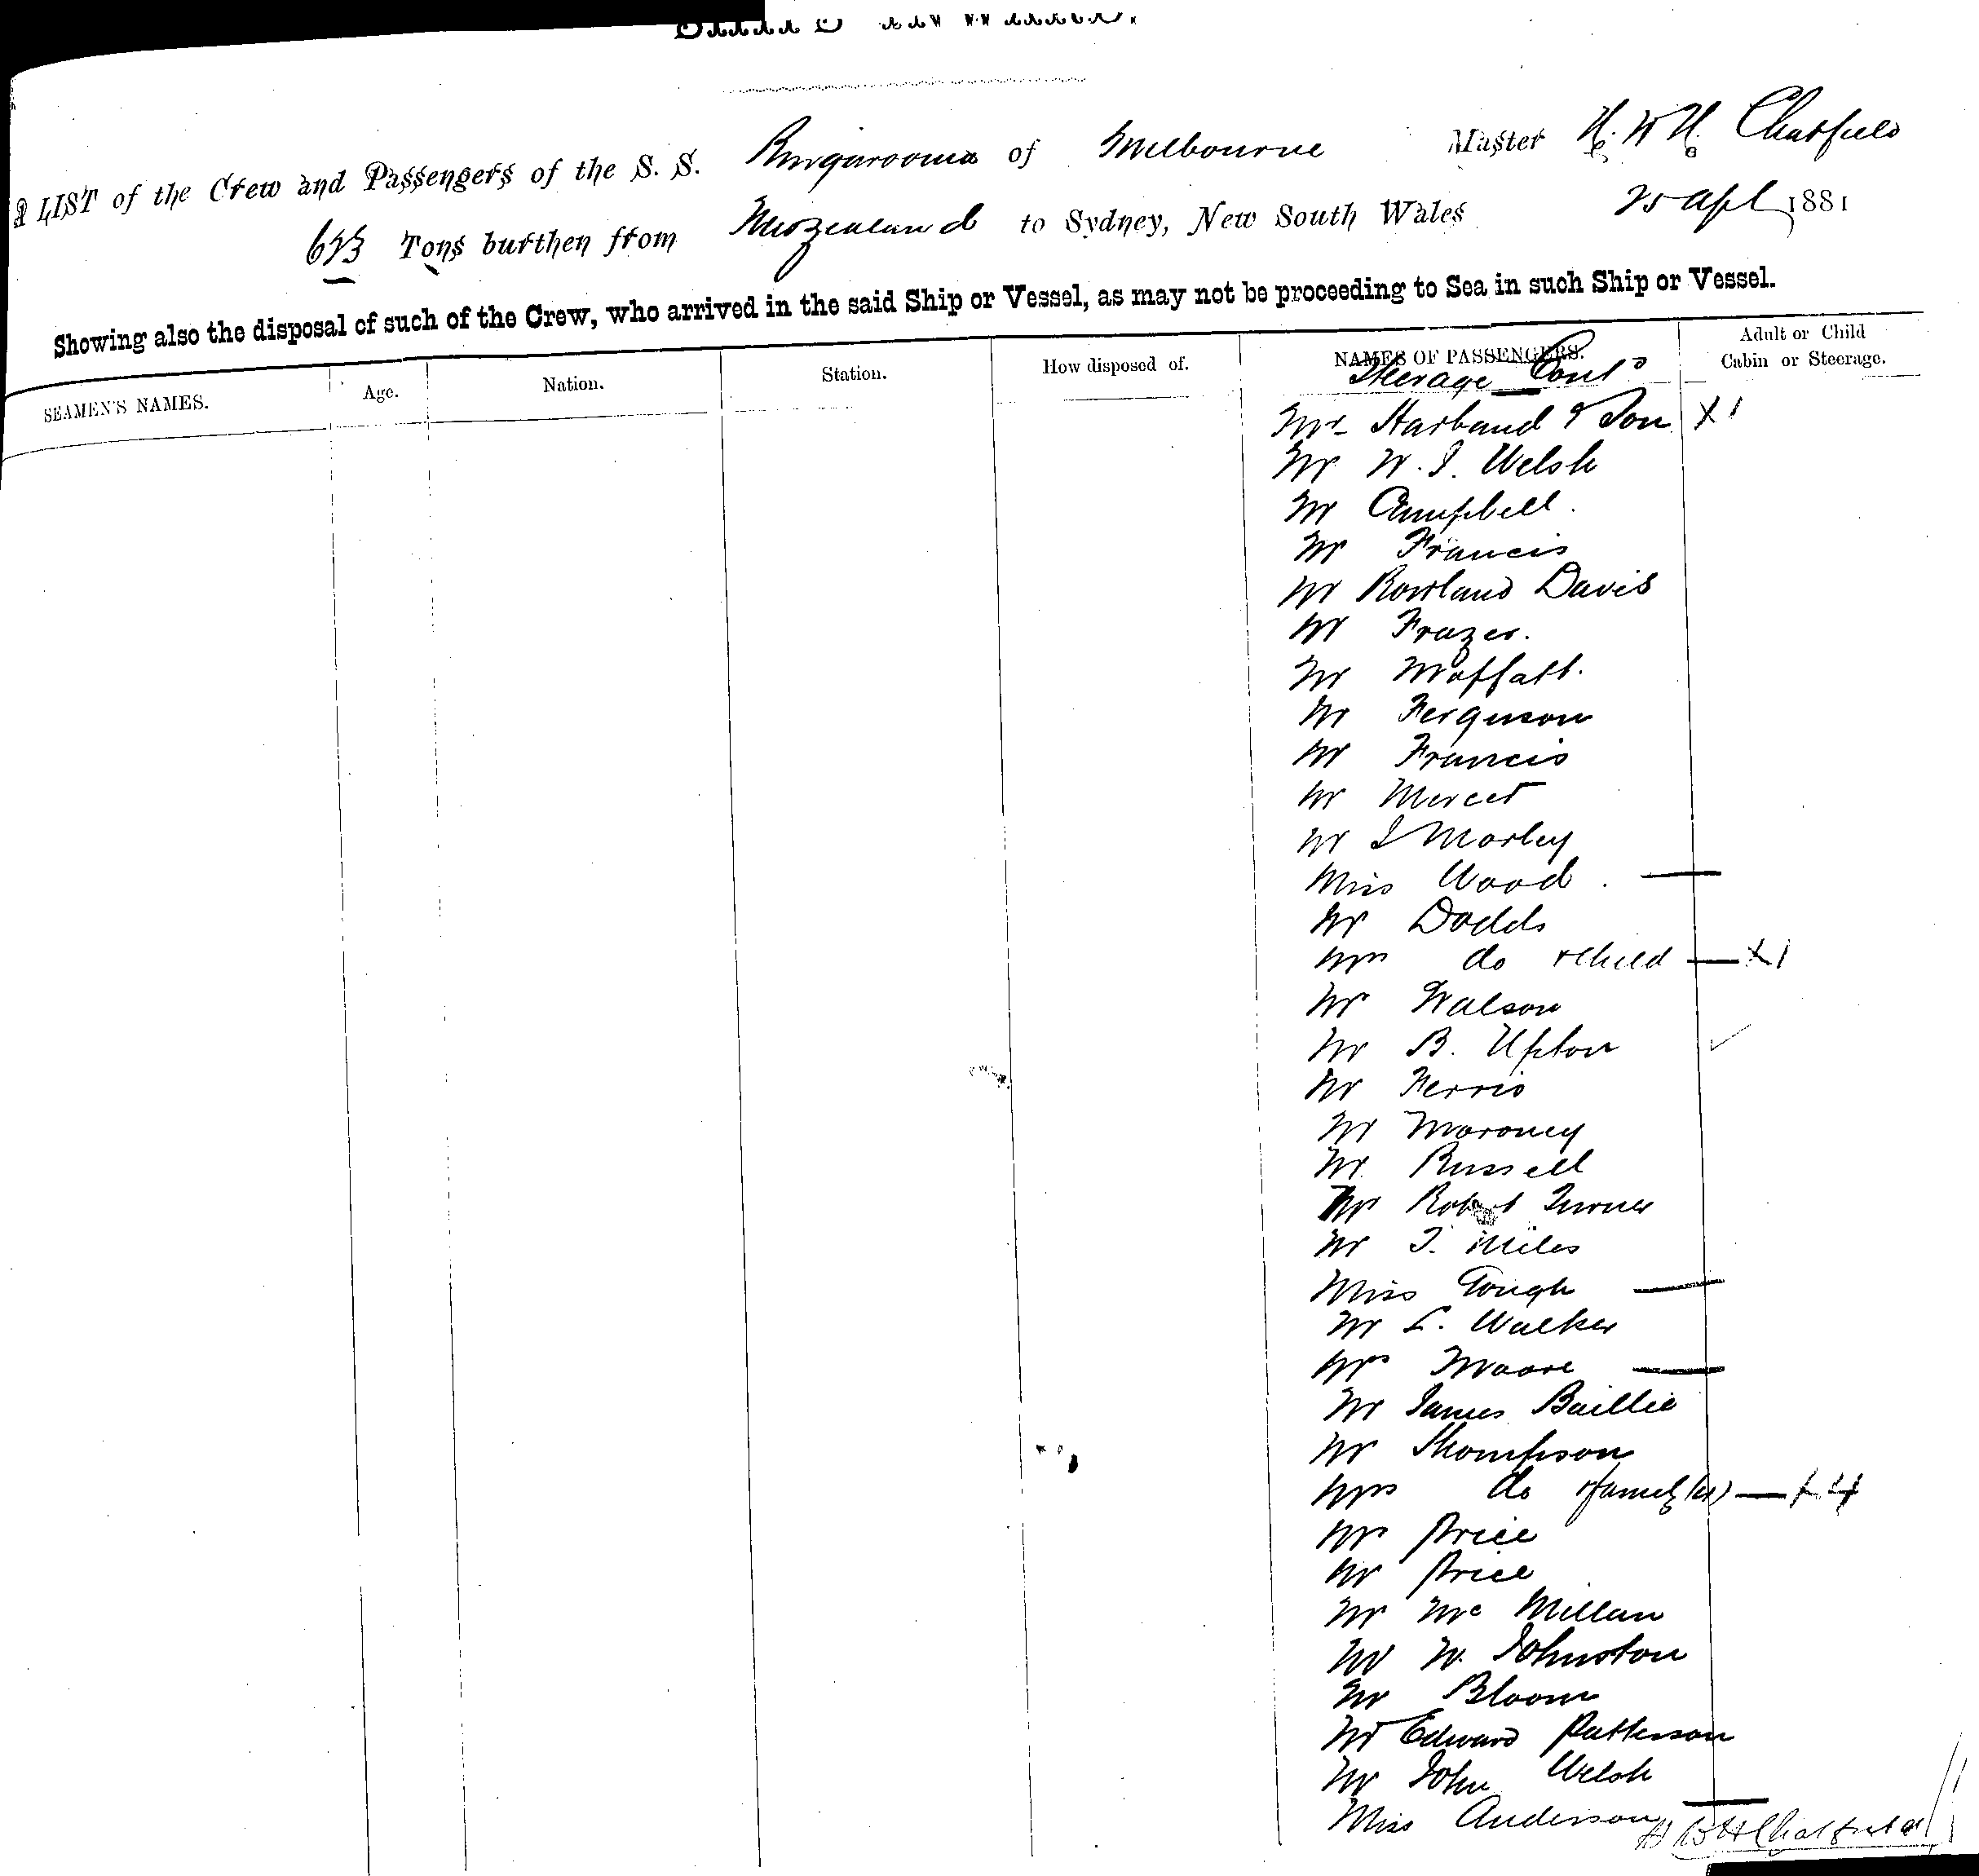 A LIST of the Crew and Passengers of the S. S. Ringarooma of Melbourne Master H. W. H. Chatfield
623 Tons burthen from New Zealand to Sydney, New South Wales 25 Apl 1881
Showing also the disposal of such of the Crew, who arrived in the said Ship or Vessel, as may not be proceeding to Sea in such Ship or Vessel.
SEAMEN'S NAMES. Age. Nation. Station. How disposed of. NAMES OF PASSENGERS. Adult or Child Cabin or Steerage.
Steerage Contd
Mr Harband & Son X1
Mr W. J. Welsh
Mr Campbell.
Mr Francis
Mr Rowland Davis
Mr Frazer.
Mr Moffatt.
Mr Ferguson
Mr Francis
Mr Mercer
Mr J Morley
Miss Wood. —
Mr Dodds
Mrs do & Child — X1
Mr Watson
Mr B. Upton ✓
Mr Ferris
Mr Maroney
Mr Russell
Mr Robert Turner
Mr T. Miles
Miss Gough —
Mr L. Walker
Mrs Moore —
Mr James Baillie
Mr Thompson
Mrs do & family (4) — X4
Mr Price
Mr Price
Mr Mc Millan
Mr W. Johnston
Mr Bloom
Mr Edward Patterson
Mr John Welsh
Miss Anderson —
H W H Chatfield